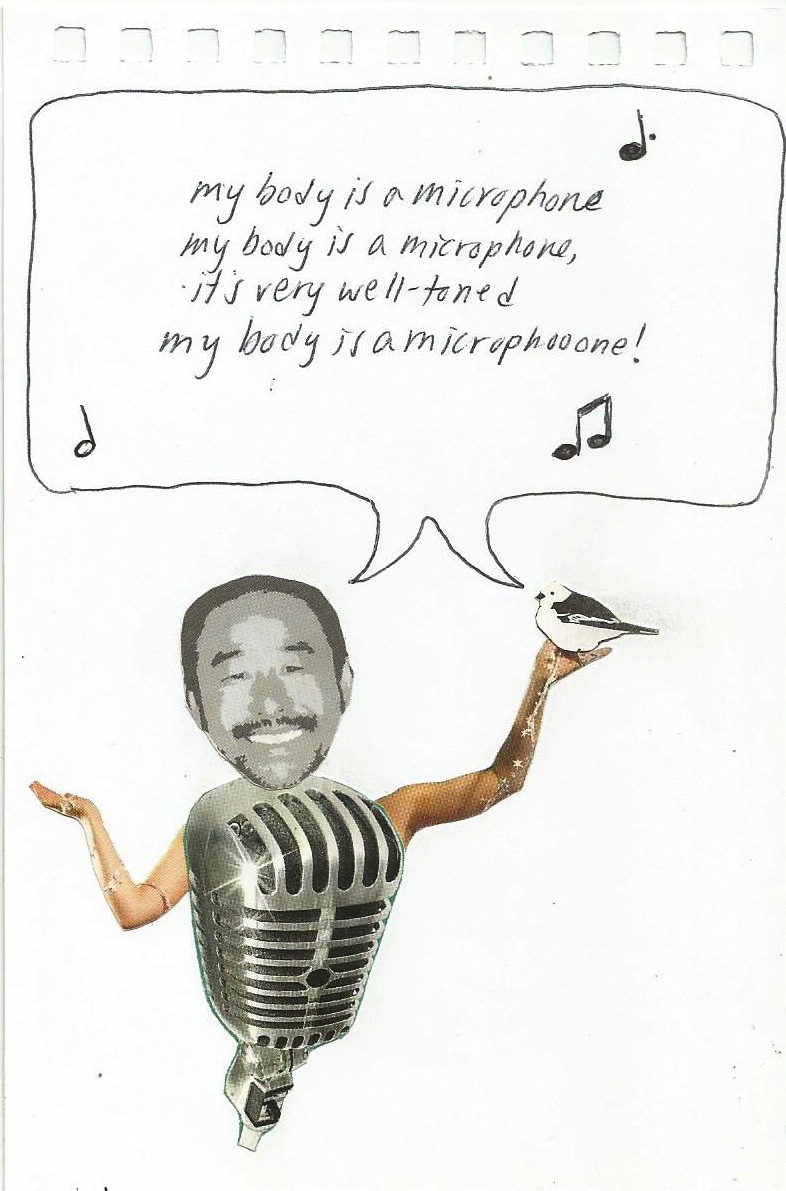 my body is a microphone
my body is a microphone,
it's very well-toned
my body is a microphooone!